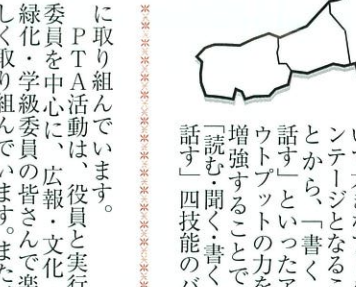 ンテージとなるこ
とから、「書く
話す」といったア
ウトプットの力を
増強することで
「読む・聞く・書く
話す」四技能のバ
に取り組んでいます。
ＰＴＡ活動は、役員と実行
委員を中心に、広報・文化
緑化・学級委員の皆さんで楽
しく取り組んでいます。また